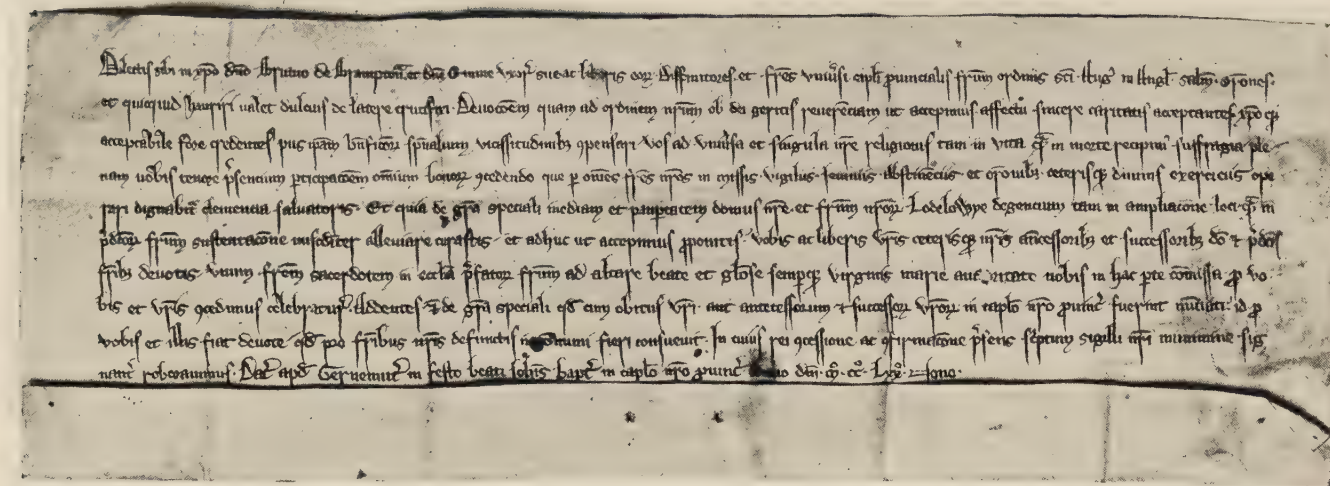 Dilectis sibi in xpo dno Briano de Brampton et dne uxori sue ac liberis eor Diffinitores et fres univsi capli provincialis frum ordinis sci Aug in Angl saltm orones
et quicquid hauriri valet dulcius de latere crucifixi Devocoem quam ad ordinem nrum ob dei geritis reverenciam ut accepimus affectu sincere caritatis acceptantes xpo q
acceptabile fore credentes pus bnficior spualium vicissitudinib conpensari vos ad univsa et singula nre religionis tam in vita qam in morte recipim suffragia ple
nam vobis tenore psencium pticipacoem omnium bonor concedendo que p omes fres nros in missis vigiliis ieiuniis abstinenciis et oronib ceterisq divinis exerciciis ope
rari dignabit clemencia salvatoris Et quia de gra speciali mediam et paupertatem domus nre et frum nror Lodelowye degencium tam in ampliacone loci qam in
pdcor frum sustentacone misditer alleviare curastis et adhuc ut accepimus pponitis vobis ac liberis vris ceterisq vris ancessorib et successorib do et pdcis
frib devotis unum frem sacerdotem in ecclia pfator frum ad altare beate et gliose sempq virginis marie auctoritate nobis in hac pte comissa p vo
bis et vris concedimus celebratur Addentes et de gra speciali qd cum obitus vri aut antecessorum et successor vror in caplo nro provinc fuerint nunciati id p
vobis et illis fiat devote qd pro fribus nris defunctis fieri consuevit In cuius rei concessione ac confirmacone psens septum sigilli nri munimine sig
nant roboravimus Dat apd in festo beati Iohis Bapt in caplo nro provinc anno dni mo cc lxx